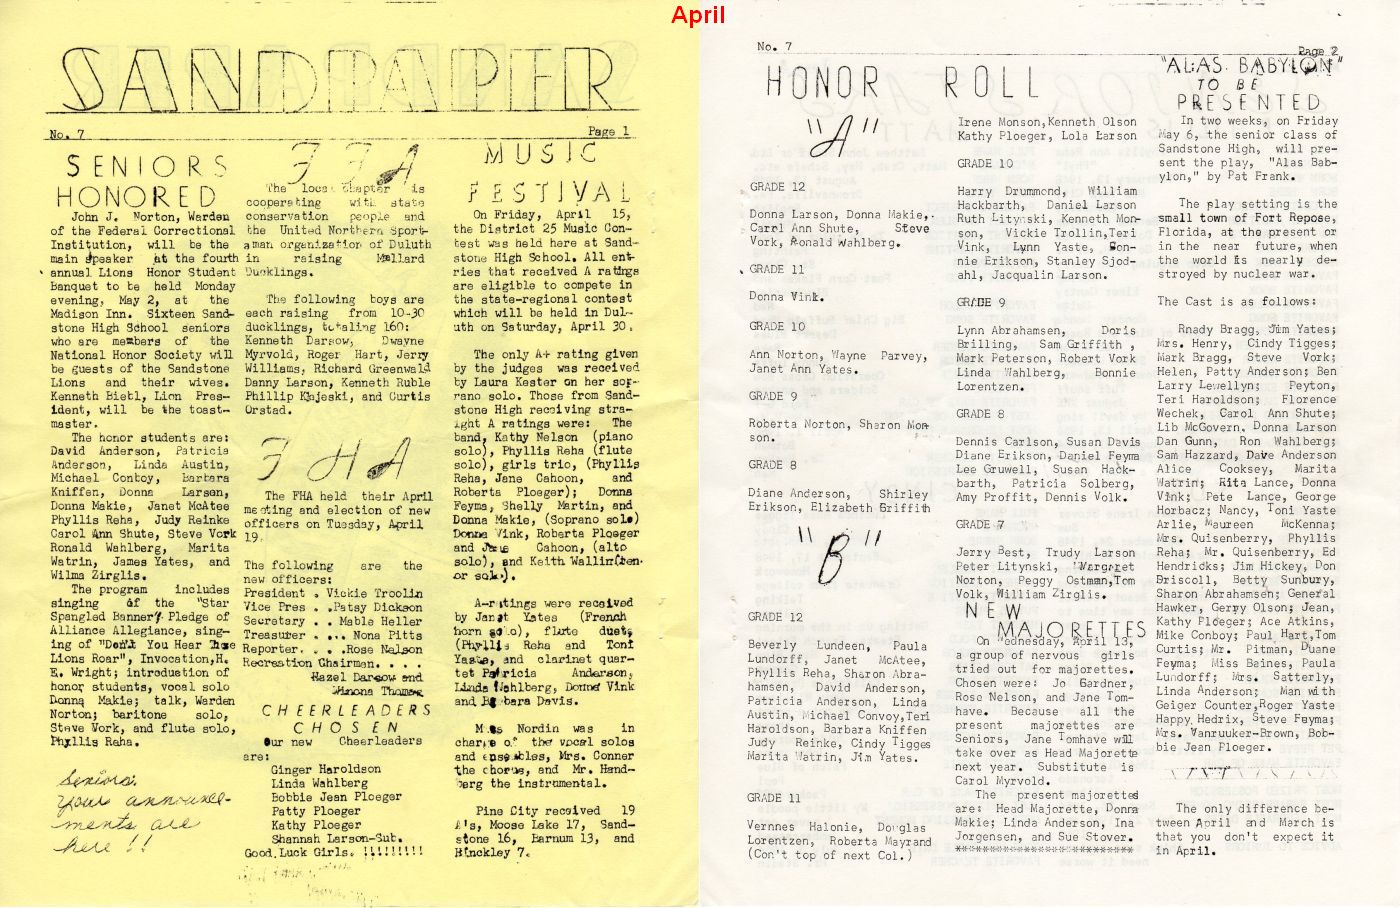 April
SANDPAPER
No. 7
Page 1
SENIORS
HONORED
John J. Norton, Warden
of the Federal Correctional
Institution, will be the
main speaker at the fourth
annual Lions Honor Student
Banquet to be held Monday
evening, May 2, at the
Madison Inn. Sixteen Sand-
stone High School seniors
who are members of the
National Honor Society will
be guests of the Sandstone
Lions and their wives.
Kenneth Bietl, Lion Pres-
ident, will be the toast-
master.
The honor students are:
David Anderson, Patricia
Anderson, Linda Austin,
Michael Conboy, Barbara
Kniffen, Donna Larsen,
Donna Makie, Janet McAtee
Phyllis Reha, Judy Reinke
Carol Ann Shute, Steve Vork
Ronald Wahlberg, Marita
Watrin, James Yates, and
Wilma Zirglis.
The program includes
singing of the "Star
Spangled Banner", Pledge of
Alliance Allegiance, sing-
ing of "Don't You Hear Those
Lions Roar", Invocation, H.
E. Wright; introduction of
honor students, vocal solo
Donna Makie; talk, Warden
Norton; baritone solo,
Steve Vork, and flute solo,
Phyllis Reha.
Seniors:
your announce-
ments are
here!!
FFA
The local Chapter is
cooperating with state
conservation people and
the United Northern Sport-
aman organization of Duluth
in raising Mallard
Ducklings.
The following boys are
each raising from 10-30
ducklings, totaling 160:
Kenneth Darsow, Dwayne
Myrvold, Roger Hart, Jerry
Williams, Richard Greenwald
Danny Larson, Kenneth Ruble
Phillip Kjajeski, and Curtis
Orstad.
FHA
The FHA held their April
meeting and election of new
officers on Tuesday, April
19.
The following are the
new officers:
President . Vickie Troolin
Vice Pres . .Patsy Dickson
Secretary . . Mable Heller
Treasurer . ... Nona Pitts
Reporter. . . .Rose Nelson
Recreation Chairmen. . . .
Hazel Darsow and
Winona Thomas
CHEERLEADERS
CHOSEN
Our new Cheerleaders
are:
Ginger Haroldson
Linda Wahlberg
Bobbie Jean Ploeger
Patty Ploeger
Kathy Ploeger
Shannah Larson-Sub.
Good Luck Girls. !!!!!!!!!
MUSIC
FESTIVAL
On Friday, April 15,
the District 25 Music Con-
test was held here at Sand-
stone High School. All ent-
ries that received A ratings
are eligible to compete in
the state-regional contest
which will be held in Dul-
uth on Saturday, April 30.
The only A+ rating given
by the judges was received
by Laura Kester on her sop-
rano solo. Those from Sand-
stone High receiving stra-
ight A ratings were: The
band, Kathy Nelson (piano
solo), Phyllis Reha (flute
solo), girls trio, (Phyllis
Reha, Jane Cahoon, and
Roberta Ploeger); Donna
Feyma, Shelly Martin, and
Donna Makie, (Soprano solo)
Donna Vink, Roberta Ploeger
and Jane Cahoon, (alto
solo), and Keith Wallin(ten-
or solo).
A-ratings were received
by Janet Yates (French
horn solo), flute duets
(Phyllis Reha and Toni
Yaste, and clarinet quar-
tet Patricia Anderson,
Linda Wahlberg, Donna Vink
and Barbara Davis.
Miss Nordin was in
charge of the vocal solos
and ensembles, Mrs. Conner
the chorus, and Mr. Hand-
berg the instrumental.
Pine City received 19
A's, Moose Lake 17, Sand-
stone 16, Barnum 13, and
Hinckley 7.
No. 7
Page 2
HONOR ROLL
"A"
GRADE 12
Donna Larson, Donna Makie,
Carol Ann Shute, Steve
Vork, Ronald Wahlberg.
GRADE 11
Donna Vink.
GRADE 10
Ann Norton, Wayne Parvey,
Janet Ann Yates.
GRADE 9
Roberta Norton, Sharon Mon-
son.
GRADE 8
Diane Anderson, Shirley
Erikson, Elizabeth Griffith
"B"
GRADE 12
Beverly Lundeen, Paula
Lundorff, Janet McAtee,
Phyllis Reha, Sharon Abra-
hamsen, David Anderson,
Patricia Anderson, Linda
Austin, Michael Convoy,Teri
Haroldson, Barbara Kniffen
Judy Reinke, Cindy Tigges
Marita Watrin, Jim Yates.
GRADE 11
Vernnes Halonie, Douglas
Lorentzen, Roberta Mayrand
(Con't top of next Col.)
Irene Monson,Kenneth Olson
Kathy Ploeger, Lola Larson
GRADE 10
Harry Drummond, William
Hackbarth, Daniel Larson
Ruth Litynski, Kenneth Mon-
son, Vickie Trollin,Teri
Vink, Lynn Yaste, Bon-
nie Erikson, Stanley Sjod-
ahl, Jacqualin Larson.
GRADE 9
Lynn Abrahamsen, Doris
Brilling, Sam Griffith ,
Mark Peterson, Robert Vork
Linda Wahlberg, Bonnie
Lorentzen.
GRADE 8
Dennis Carlson, Susan Davis
Diane Erikson, Daniel Feyma
Lee Gruwell, Susan Hack-
barth, Patricia Solberg,
Amy Proffit, Dennis Volk.
GRADE 7
Jerry Best, Trudy Larson
Peter Litynski, Margaret
Norton, Peggy Ostman,Tom
Volk, William Zirglis.
NEW
MAJORETTES
On Wednesday, April 13,
a group of nervous girls
tried out for majorettes.
Chosen were: Jo Gardner,
Rose Nelson, and Jane Tom-
have. Because all the
present majorettes are
Seniors, Jane Tomhave will
take over as Head Majorette
next year. Substitute is
Carol Myrvold.
The present majorettes
are: Head Majorette, Donna
Makie; Linda Anderson, Ina
Jorgensen, and Sue Stover.
**************************
"ALAS BABYLON"
TO BE
PRESENTED
In two weeks, on Friday
May 6, the senior class of
Sandstone High, will pre-
sent the play, "Alas Bab-
ylon," by Pat Frank.
The play setting is the
small town of Fort Repose,
Florida, at the present or
in the near future, when
the world is nearly de-
stroyed by nuclear war.
The Cast is as follows:
Rnady Bragg, Jim Yates;
Mrs. Henry, Cindy Tigges;
Mark Bragg, Steve Vork;
Helen, Patty Anderson; Ben
Larry Lewellyn; Peyton,
Teri Haroldson; Florence
Wechek, Carol Ann Shute;
Lib McGovern, Donna Larson
Dan Gunn, Ron Wahlberg;
Sam Hazzard, Dave Anderson
Alice Cooksey, Marita
Watrin; Rita Lance, Donna
Vink; Pete Lance, George
Horbacz; Nancy, Toni Yaste
Arlie, Maureen McKenna;
Mrs. Quisenberry, Phyllis
Reha; Mr. Quisenberry, Ed
Hendricks; Jim Hickey, Don
Driscoll, Betty Sunbury,
Sharon Abrahamsen; General
Hawker, Gerry Olson; Jean,
Kathy Ploeger; Ace Atkins,
Mike Conboy; Paul Hart,Tom
Curtis; Mr. Pitman, Duane
Feyma; Miss Baines, Paula
Lundorff; Mrs. Satterly,
Linda Anderson; Man with
Geiger Counter,Roger Yaste
Happy Hedrix, Steve Feyma;
Mrs. Vanruuker-Brown, Bob-
bie Jean Ploeger.
The only difference be-
tween April and March is
that you don't expect it
in April.